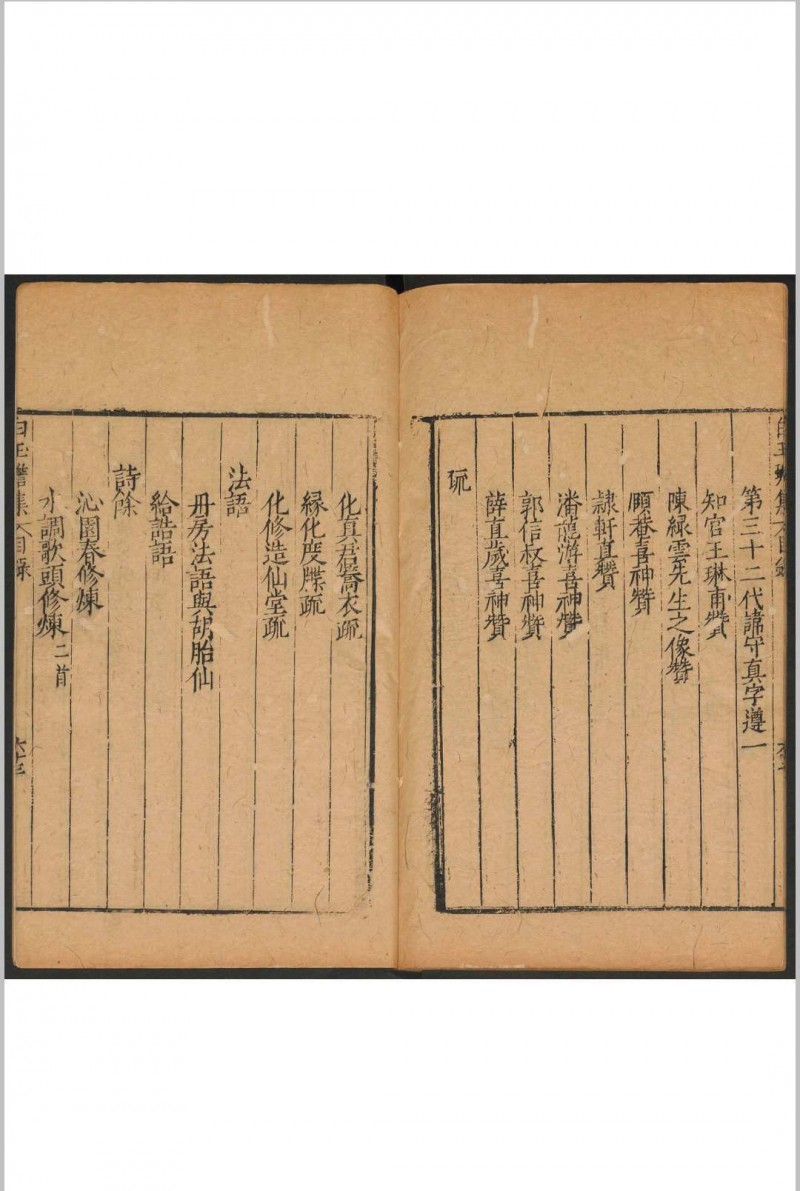 第三十二代諱守真字遵一
知宫王琳甫贊
陳緑雲先生之像贊
頤菴喜神贊
隷軒真贊
潘龍游喜神贊
郭信叔喜神贊
薛直歲喜神贊
疏
化真君簥衣疏
縁化度牒疏
化修造仙堂疏
法語
丹房法語與胡胎仙
給誥語
詩餘
沁園春修煉
水調歌頭修煉二首
白玉蟾集 目録